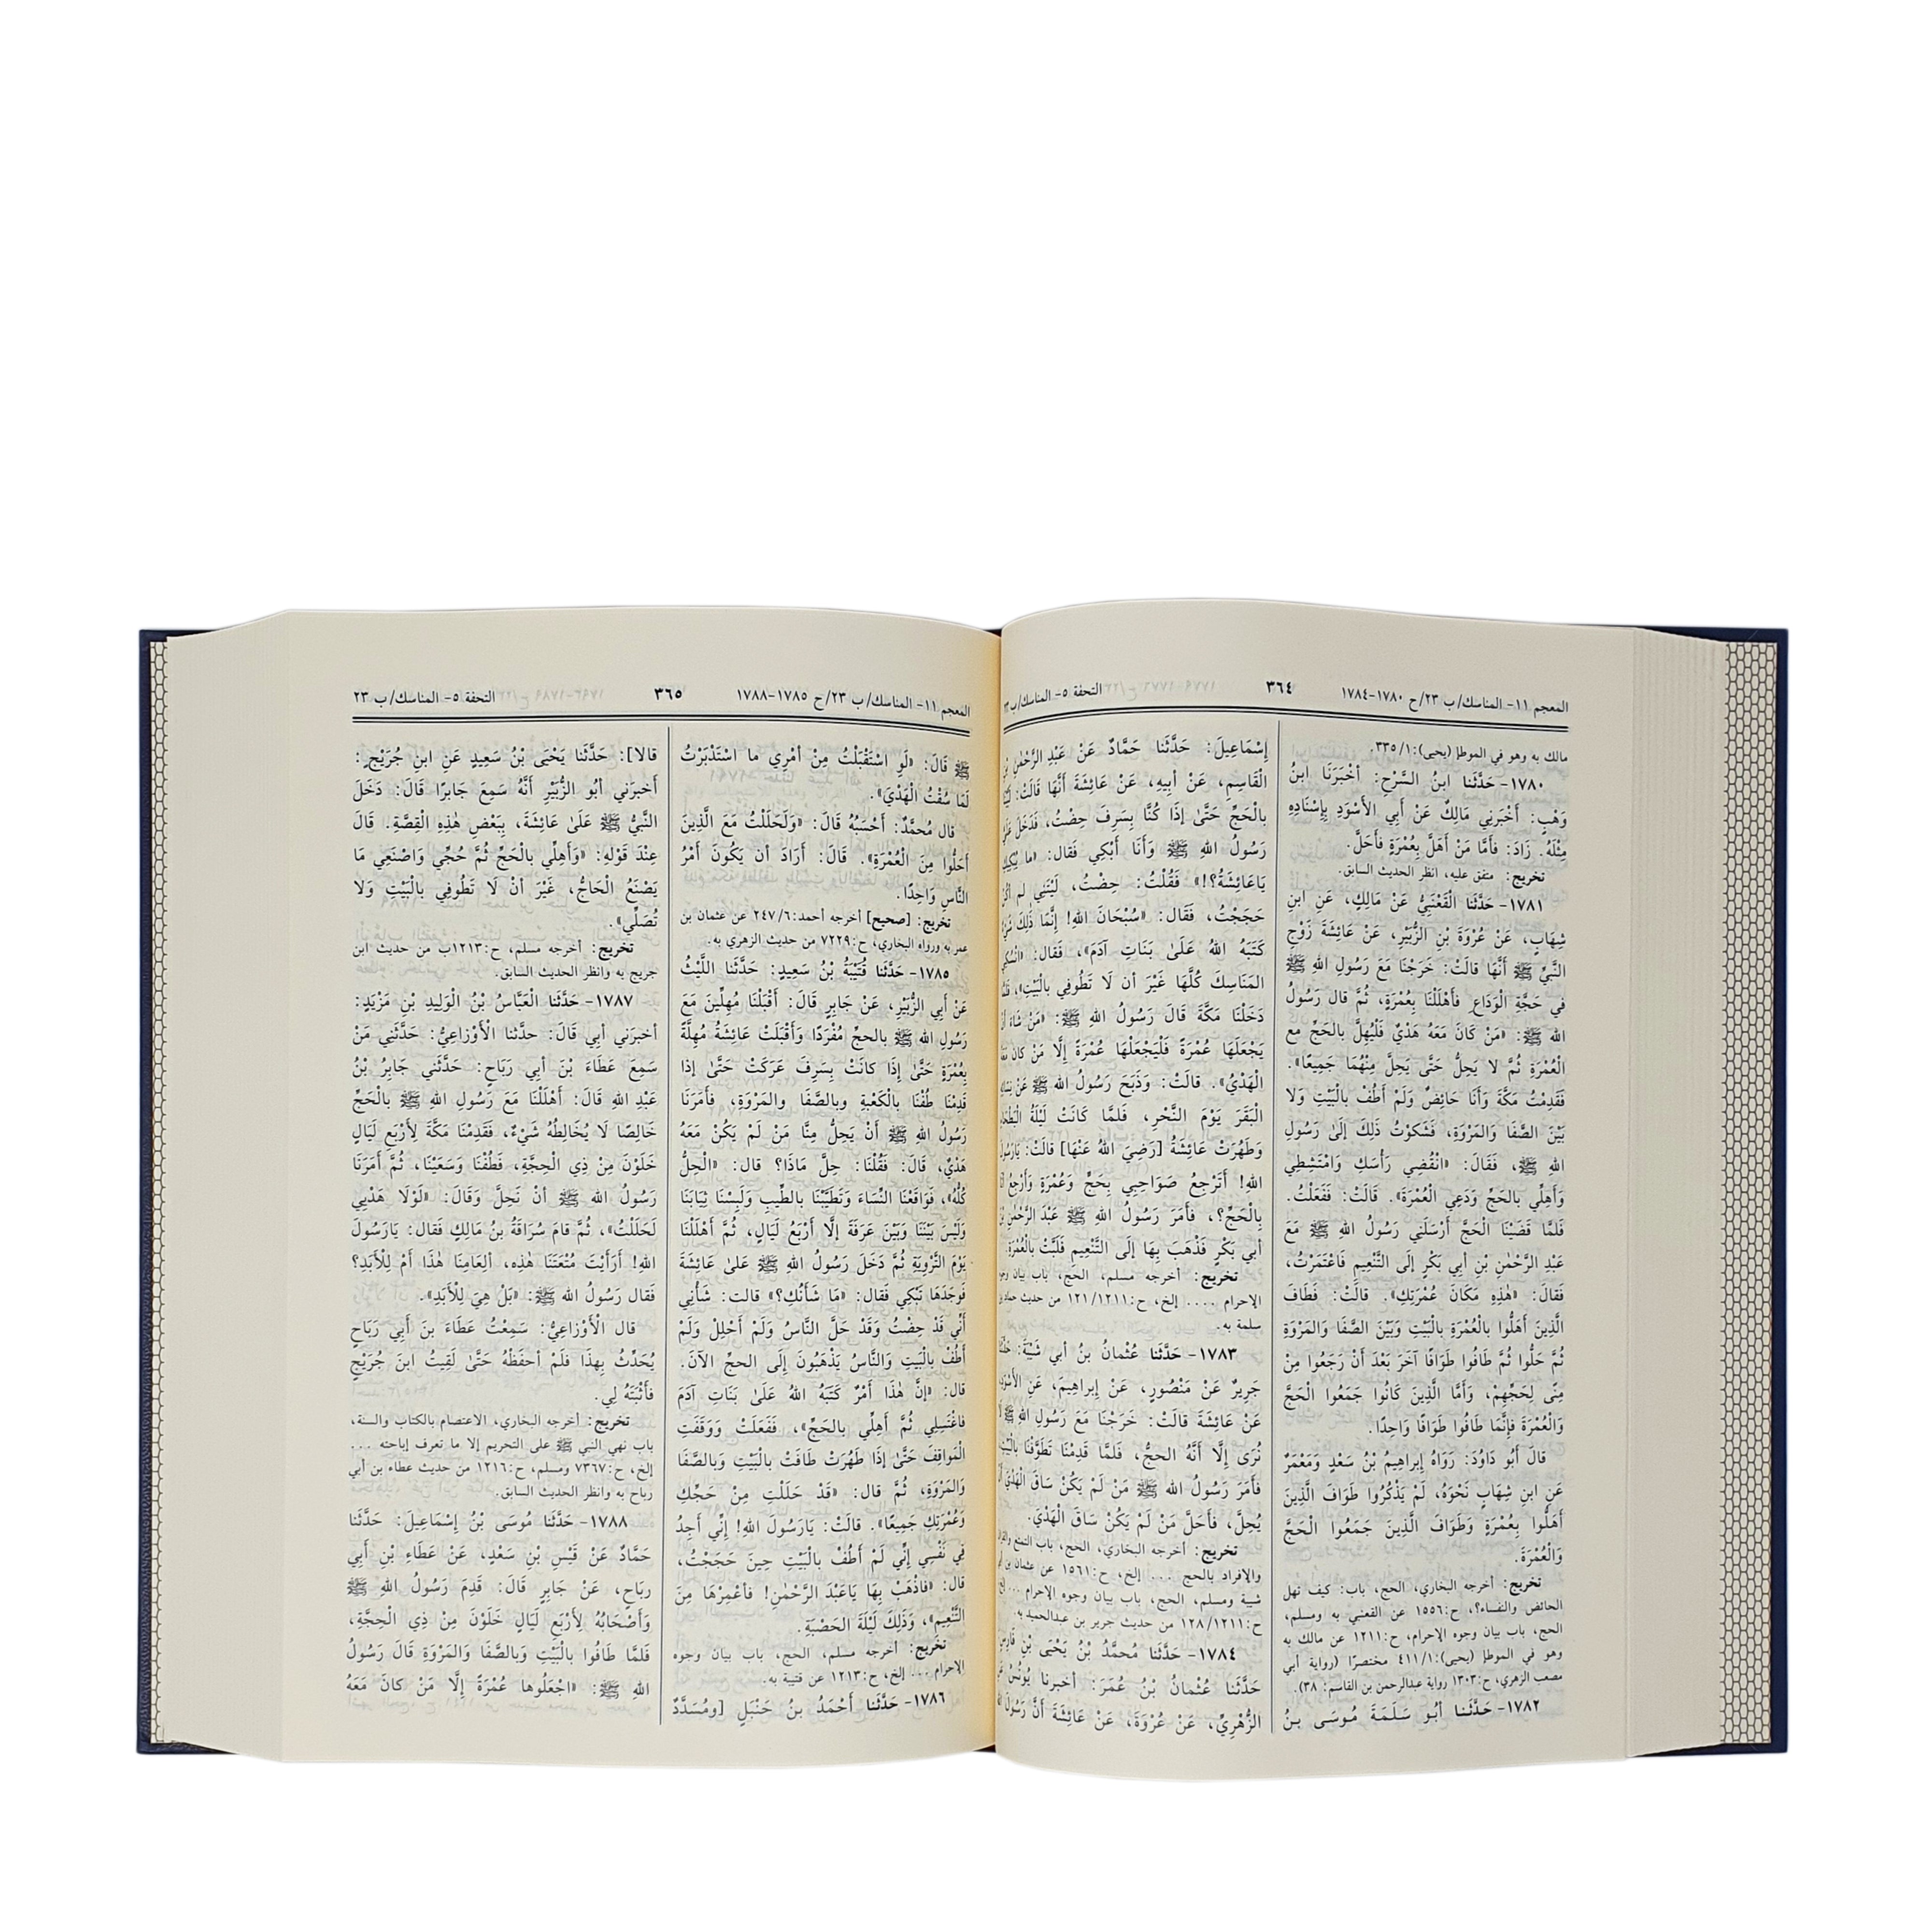 المعجم ١١- المناسك/ ب ٢٣/ح ١٧٨٠-١٧٨٤
٣٦٤
التحفة ٥- المناسك/ ب ٢٣
مالك به وهو في الموطإ (يحيى):١/ ٣٣٥.
١٧٨٠- حَدَّثَنا ابنُ السَّرْحِ: أخْبَرَنَا ابنُ
وَهْبٍ: أَخْبَرَنِي مَالِكٌ عَنْ أَبِي الأَسْوَدِ بِإِسْنَادِهِ
مِثْلَهُ. زَادَ: فأَمَّا مَنْ أَهَلَّ بِعُمْرَةٍ فأَحَلَّ.
تخريج: متفق عليه، انظر الحديث السابق.
١٧٨١- حَدَّثَنَا الْقَعْنَبِيُّ عَنْ مَالِكٍ، عَنِ ابنِ
شِهَابٍ، عَنْ عُرْوَةَ بْنِ الزُّبَيْرِ، عَنْ عَائِشَةَ زَوْجِ
النَّبيِّ ﷺ أَنَّهَا قالَتْ: خَرَجْنَا مَعَ رَسُولِ الله ﷺ
في حَجَّةِ الْوَدَاعِ فأَهْلَلْنَا بِعُمْرَةٍ، ثُمَّ قال رَسُولُ
الله ﷺ: «مَنْ كَانَ مَعَهُ هَدْيٌ فَلْيُهِلَّ بالحَجِّ مع
الْعُمْرَةِ ثُمَّ لا يَحِلُّ حَتَّى يَحِلَّ مِنْهُمَا جَمِيعًا».
فَقَدِمْتُ مَكَّةَ وَأَنَا حَائِضٌ وَلَمْ أَطُفْ بالْبَيْتِ وَلا
بَيْنَ الصَّفَا وَالمَرْوَةِ، فَشَكَوْتُ ذَلِكَ إلَىٰ رَسُولِ
الله ﷺ، فَقَالَ: «انْقُضِي رَأْسَكِ وَامْتَشِطِي
وَأَهِلِّي بالحَجِّ وَدَعِي الْعُمْرَةَ». قَالَتْ: فَفَعَلْتُ.
فَلمَّا قَضَيْنَا الْحَجَّ أَرْسَلَنِي رَسُولُ الله ﷺ مَعَ
عَبْدِ الرَّحْمٰنِ بْنِ أبي بَكْرٍ إلَى التَّنْعِيمِ فَاعْتَمَرْتُ،
فَقَالَ: «هَذِهِ مَكَانَ عُمْرَتِكِ». قالَتْ: فَطَافَ
الَّذِينَ أَهَلُّوا بالْعُمْرَةِ بالْبَيْتِ وَبَيْنَ الصَّفَا وَالمَرْوَةِ
ثُمَّ حَلُّوا ثُمَّ طَافُوا طَوَافًا آخَرَ بَعْدَ أَنْ رَجَعُوا مِنْ
مِنًى لِحَجِّهِمْ، وَأَمَّا الَّذِينَ كَانُوا جَمَعُوا الْحَجَّ
وَالْعُمْرَةَ فإنَّمَا طَافُوا طَوَافًا وَاحِدًا.
قالَ أَبُو دَاوُدَ: رَوَاهُ إبراهِيمُ بْنُ سَعْدٍ وَمَعْمَرٌ
عَنِ ابنِ شِهَابٍ نَحْوَهُ، لَمْ يَذْكُرُوا طَوَافَ الَّذِينَ
أَهَلُّوا بِعُمْرَةٍ وَطَوَافَ الَّذِينَ جَمَعُوا الْحَجَّ
وَالْعُمْرَةَ.
تخريج: أخرجه البخاري، الحج، باب: كيف تهل
الحائض والنفساء؟، ح:١٥٥٦ عن القعنبي به ومسلم،
الحج، باب بيان وجوه الإحرام، ح:١٢١١ عن مالك به
وهو في الموطإ (يحيى):١/ ٤١١ مختصرًا (رواية أبي
مصعب الزهري، ح:١٣٠٣ رواية عبدالرحمن بن القاسم: ٣٨).
١٧٨٢- حَدَّثَنا أبُو سَلَمَةَ مُوسَى بنُ
إسْمَاعِيلَ: حَدَّثَنا حَمَّادٌ عَنْ عَبْدِ الرَّحْمٰنِ بْنِ
الْقَاسِمِ، عَنْ أبِيهِ، عَنْ عَائِشَةَ أَنَّهَا قالَتْ:
بالْحَجِّ حَتَّىٰ إذَا كُنَّا بِسَرِفَ حِضْتُ، فَدَخَلَ
رَسُولُ اللهِ ﷺ وَأَنَا أَبْكِي فَقَال: «ما يُبْكِيكِ
يَاعَائِشَةُ؟!» فَقُلْتُ: حِضْتُ، لَيْتَنِي لم أكُنْ
حَجَجْتُ، فَقَال: «سُبْحَانَ اللهِ! إِنَّمَا ذَلِكَ
كَتَبَهُ اللهُ عَلَىٰ بَنَاتِ آدَمَ»، فَقَال: «انْسُكِي
المَنَاسِكَ كُلَّهَا غَيْرَ أن لَا تَطُوفِي بالْبَيْتِ»،
دَخَلْنَا مَكَّةَ قَالَ رَسُولُ اللهِ ﷺ: «مَنْ شاءَ أنْ
يَجْعَلَهَا عُمْرَةً فَلْيَجْعَلْهَا عُمْرَةً إلَّا مَنْ كان مَعَهُ
الْهَدْيُ». قالَتْ: وَذَبَحَ رَسُولُ الله ﷺ عَنْ
الْبَقَرَ يَوْمَ النَّحْرِ، فَلمَّا كَانَتْ لَيْلَةُ الْبَطْحَاءِ
وَطَهُرَتْ عَائِشَةُ [رَضِيَ اللهُ عَنْهَا] قالَتْ: يَارَسُولَ
الله! أَتَرْجِعُ صَوَاحِبِي بِحَجٍّ وَعُمْرَةٍ وَأَرْجِعُ
بِالْحَجِّ؟، فأَمَرَ رَسُولُ اللهِ ﷺ عَبْدَ الرَّحْمٰنِ بْنَ
أبي بَكْرٍ فَذَهَبَ بِهَا إلَى التَّنْعِيمِ فَلَبَّتْ بالْعُمْرَةِ.
تخريج: أخرجه مسلم، الحج، باب بيان وجوه
الإحرام .... إلخ، ح:١٢١١/ ١٢١ من حديث حماد بن
سلمة به.
١٧٨٣- حَدَّثَنا عُثْمانُ بنُ أبي شَيْبَةَ: حَدَّثَنَا
جَرِيرٌ عَنْ مَنْصُورٍ، عَنْ إبراهِيمَ، عَنِ الأسْوَدِ،
عَنْ عَائِشَةَ قالَتْ: خَرَجْنَا مَعَ رَسُولِ اللهِ ﷺ لَا
نُرَى إلَّا أَنَّهُ الحجُّ، فَلمَّا قَدِمْنَا تَطَوَّفْنَا بالْبَيْتِ،
فأَمَرَ رَسُولُ الله ﷺ مَنْ لَمْ يَكُنْ سَاقَ الْهَدْيَ أَنْ
يُحِلَّ، فأَحَلَّ مَنْ لَمْ يَكُنْ سَاقَ الْهَدْيَ.
تخريج: أخرجه البخاري، الحج، باب التمتع والقران
والإفراد بالحج ... إلخ، ح:١٥٦١ عن عثمان بن أبي
شيبة ومسلم، الحج، باب بيان وجوه الإحرام ...
ح:١٢١١/ ١٢٨ من حديث جرير بن عبدالحميد به.
١٧٨٤- حَدَّثَنا مُحَمَّدُ بْنُ يَحْيَى بْنِ فَارِسٍ
حَدَّثَنَا عُثْمانُ بْنُ عُمَرَ: أخبرنا يُونُسُ عَنِ
الزُّهْرِيِّ، عَنْ عُرْوَةَ، عَنْ عَائِشَةَ أنَّ رَسُولَ الله
المعجم ١١- المناسك/ ب ٢٣/ح ١٧٨٥-١٧٨٨
٣٦٥
التحفة ٥- المناسك/ ب ٢٣
ﷺ قَالَ: «لَوِ اسْتَقْبَلْتُ مِنْ أمْرِي ما اسْتَدْبَرْتُ
لَمَا سُقْتُ الْهَدْيَ».
قال مُحمَّدٌ: أَحْسَبُهُ قَالَ: «وَلَحَلَلْتُ مَعَ الَّذِينَ
أَحَلُّوا مِنَ الْعُمْرَةِ». قَالَ: أَرَادَ أن يَكُونَ أَمْرُ
النَّاسِ وَاحِدًا.
تخريج: [صحيح] أخرجه أحمد:٦/ ٢٤٧ عن عثمان بن
عمر به ورواه البخاري، ح:٧٢٢٩ من حديث الزهري به.
١٧٨٥- حَدَّثَنا قُتَيْبَةُ بْنُ سَعِيدٍ: حَدَّثَنَا اللَّيْثُ
عَنْ أبي الزُّبَيْرِ، عَنْ جَابِرٍ قَالَ: أَقْبَلْنَا مُهِلِّينَ مَعَ
رَسُولِ الله ﷺ بالحجِّ مُفْرَدًا وَأَقْبَلَتْ عَائِشَةُ مُهِلَّةً
بِعُمْرَةٍ حَتَّىٰ إِذَا كانَتْ بِسَرِفَ عَرَكَتْ حَتَّىٰ إذا
قَدِمْنَا طُفْنَا بالْكَعْبَةِ وبالصَّفَا والمَرْوَةِ، فأَمَرَنَا
رَسُولُ الله ﷺ أَنْ يَحِلَّ مِنَّا مَنْ لَمْ يَكُنْ مَعَهُ
هَدْيٌ، قَالَ: فَقُلْنَا: حِلَّ مَاذَا؟ قال: «الْحِلُّ
كُلُّهُ»، فَوَاقَعْنَا النِّسَاءَ وَتَطَيَّبْنَا بالطِّيبِ وَلَبِسْنَا ثِيَابَنَا
وَلَيْسَ بَيْنَنَا وَبَيْنَ عَرَفَةَ إلَّا أَرْبَعُ لَيَالٍ، ثُمَّ أَهْلَلْنَا
يَوْمَ التَّرْوِيَةِ ثُمَّ دَخَلَ رَسُولُ الله ﷺ عَلىٰ عَائِشَةَ
فَوَجَدَهَا تَبْكِي فقالَ: «مَا شَأْنُكِ؟» قالت: شَأْنِي
أَنِّي قَدْ حِضْتُ وَقَدْ حَلَّ النَّاسُ وَلَمْ أَحْلِلْ وَلَمْ
أَطُفْ بالْبَيتِ وَالنَّاسُ يَذْهَبُونَ إِلَى الحجِّ الآنَ.
قال: «إنَّ هٰذَا أَمْرٌ كَتَبَهُ اللهُ عَلَىٰ بَنَاتِ آدَمَ
فاغْتَسِلِي ثُمَّ أَهِلِّي بالحَجِّ»، فَفَعَلَتْ وَوَقَفَتِ
الْمَوَاقِفَ حَتَّىٰ إذَا طَهُرَتْ طَافَتْ بالْبَيْتِ وَبالصَّفَا
وَالمَرْوَةِ، ثُمَّ قال: «قَدْ حَلَلْتِ مِنْ حَجِّكِ
وَعُمْرَتِكِ جَمِيعًا». قالَتْ: يَارَسُولَ اللهِ! إنِّي أَجِدُ
فِي نَفْسِي إنِّي لَمْ أَطُفْ بالْبَيْتِ حِينَ حَجَجْتُ،
قال: «فاذْهَبْ بِهَا يَاعَبْدَ الرَّحْمٰنِ! فأعْمِرْهَا مِنَ
التَّنْعِيمِ»، وَذَلِكَ لَيْلَةَ الحَصْبَةِ.
تخريج: أخرجه مسلم، الحج، باب بيان وجوه
الإحرام ... إلخ، ح:١٢١٣ عن قتيبة به.
١٧٨٦- حَدَّثَنا أَحْمَدُ بنُ حَنْبَلٍ [ومُسَدَّدٌ
قالا]: حَدَّثَنا يَحْيَى بْنُ سَعِيدٍ عَنِ ابنِ جُرَيْجٍ:
أخبرَنِي أبُو الزُّبَيْرِ أَنَّهُ سَمِعَ جَابرًا قَالَ: دَخَلَ
النَّبيُّ ﷺ عَلَىٰ عَائِشَةَ، بِبَعْضِ هٰذِهِ الْقِصَّةِ. قَالَ
عِنْدَ قَوْلِهِ: «وَأَهِلِّي بالْحَجِّ ثُمَّ حُجِّي وَاصْنَعِي مَا
يَصْنَعُ الْحَاجُّ، غَيْرَ أنْ لَا تَطُوفِي بالْبَيْتِ وَلا
تُصَلِّي».
تخريج: أخرجه مسلم، ح:١٢١٣ب من حديث ابن
جريج به وانظر الحديث السابق.
١٧٨٧- حَدَّثَنَا الْعَبَّاسُ بْنُ الْوَلِيدِ بْنِ مَزْيَدٍ:
أخبرَني أبِي قَالَ: حدَّثنا الْأَوْزَاعِيُّ: حَدَّثَنِي مَنْ
سَمِعَ عَطَاءَ بْنَ أبي رَبَاحٍ: حَدَّثَنِي جَابِرُ بْنُ
عَبْدِ اللهِ قَالَ: أَهْلَلْنَا مَعَ رَسُولِ اللهِ ﷺ بالْحَجِّ
خَالِصًا لَا يُخَالِطُهُ شَيْءٌ، فَقَدِمْنَا مَكَّةَ لِأَرْبَعِ لَيَالٍ
خَلَوْنَ مِنْ ذِي الْحِجَّةِ، فَطُفْنَا وَسَعَيْنَا، ثُمَّ أَمَرَنَا
رَسُولُ الله ﷺ أنْ نَحِلَّ وَقَالَ: «لَوْلَا هَدْيِي
لَحَلَلْتُ»، ثُمَّ قامَ سُرَاقَةُ بنُ مَالِكٍ فَقال: يَارَسُولَ
اللهِ! أَرَأَيْتَ مُتْعَتَنَا هٰذِهِ، ألِعَامِنَا هٰذَا أَمْ لِلْأَبَدِ؟
فَقال رَسُولُ الله ﷺ: «بَلْ هِيَ لِلْأَبَدِ».
قال الْأَوْزَاعِيُّ: سَمِعْتُ عَطَاءَ بنَ أَبِي رَبَاحٍ
يُحَدِّثُ بِهذَا فَلَمْ أَحفَظْهُ حَتَّىٰ لَقِيتُ ابنَ جُرَيْجٍ
فأَثْبَتَهُ لِي.
تخريج: أخرجه البخاري، الاعتصام بالكتاب والسنة،
باب نهي النبي ﷺ على التحريم إلا ما تعرف إباحته ...
إلخ، ح:٧٣٦٧ ومسلم، ح:١٢١٦ من حديث عطاء بن أبي
رباح به وانظر الحديث السابق.
١٧٨٨- حَدَّثَنا مُوسَى بْنُ إِسْمَاعِيلَ: حَدَّثَنَا
حَمَّادٌ عَنْ قَيْسِ بْنِ سَعْدٍ، عَنْ عَطَاءِ بْنِ أَبِي
رباحٍ، عَنْ جَابِرٍ قَالَ: قَدِمَ رَسُولُ الله ﷺ
وَأَصْحَابُهُ لِأَرْبَعِ لَيَالٍ خَلَوْنَ مِنْ ذِي الْحِجَّةِ،
فَلمَّا طَافُوا بالْبَيْتِ وَبالصَّفَا وَالمَرْوَةِ قَالَ رَسُولُ
اللهِ ﷺ: «اجْعَلُوها عُمْرَةً إلَّا مَنْ كانَ مَعَهُ